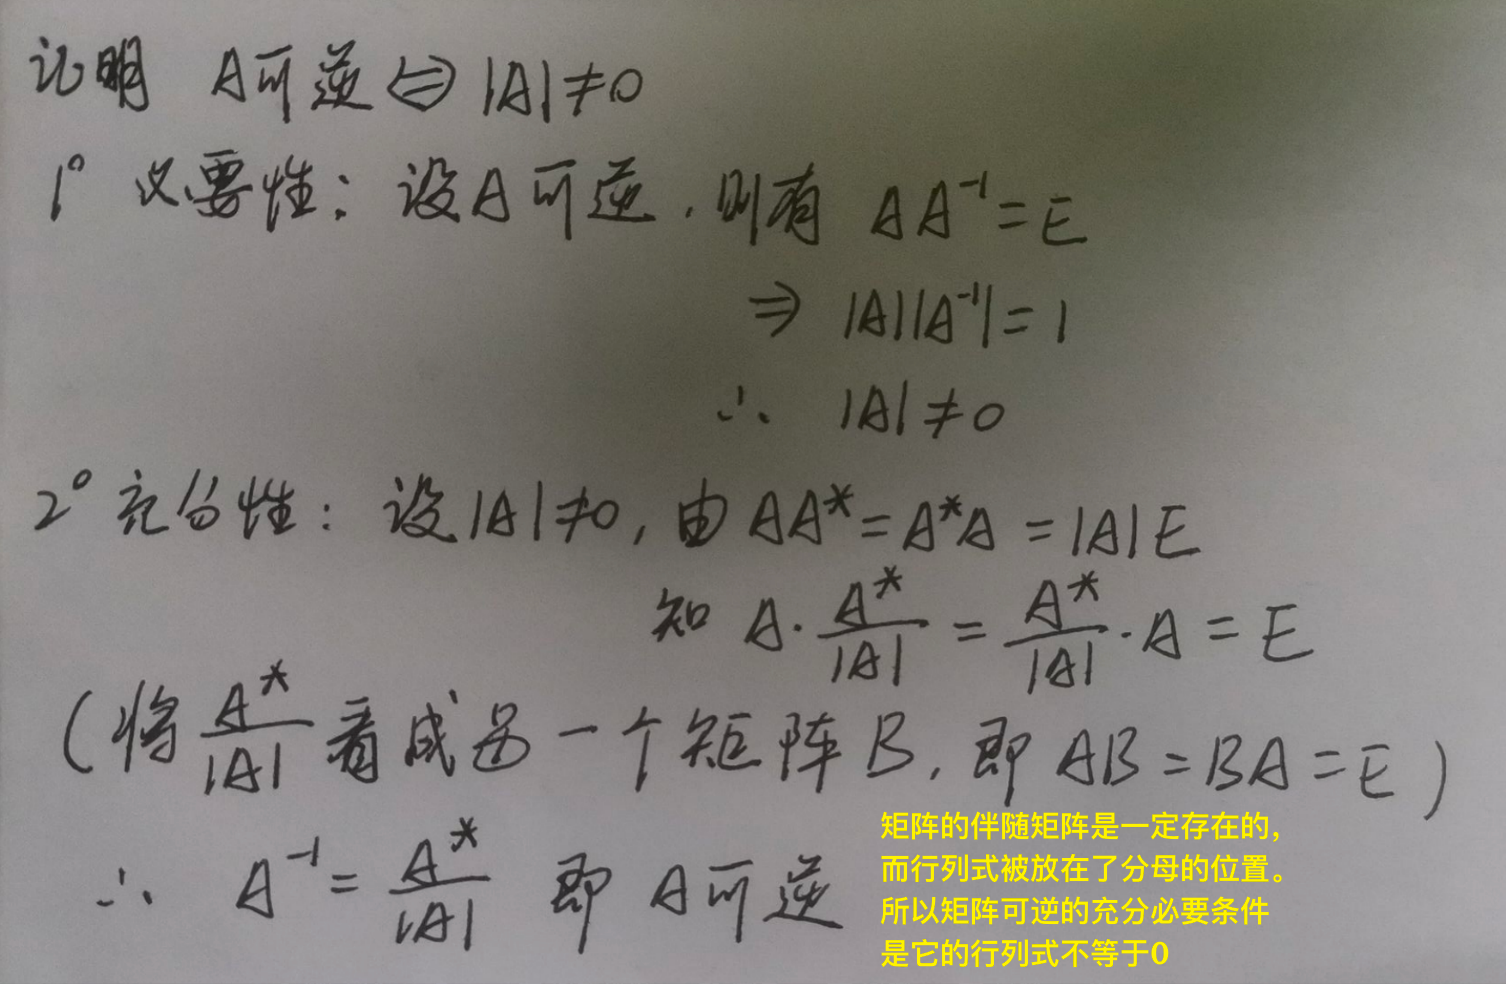 证明 A可逆⇔|A|≠0
1° 必要性：设A可逆，则有 AA⁻¹=E
⇒ |A||A⁻¹|=1
∴ |A|≠0
2° 充分性：设|A|≠0，由AA*=A*A=|A|E
知 A·A*/|A|=A*/|A|·A=E
(将A*/|A|看成另一个矩阵B，即AB=BA=E)
∴ A⁻¹=A*/|A| 即 A可逆
矩阵的伴随矩阵是一定存在的，
而行列式被放在了分母的位置。
所以矩阵可逆的充分必要条件
是它的行列式不等于0